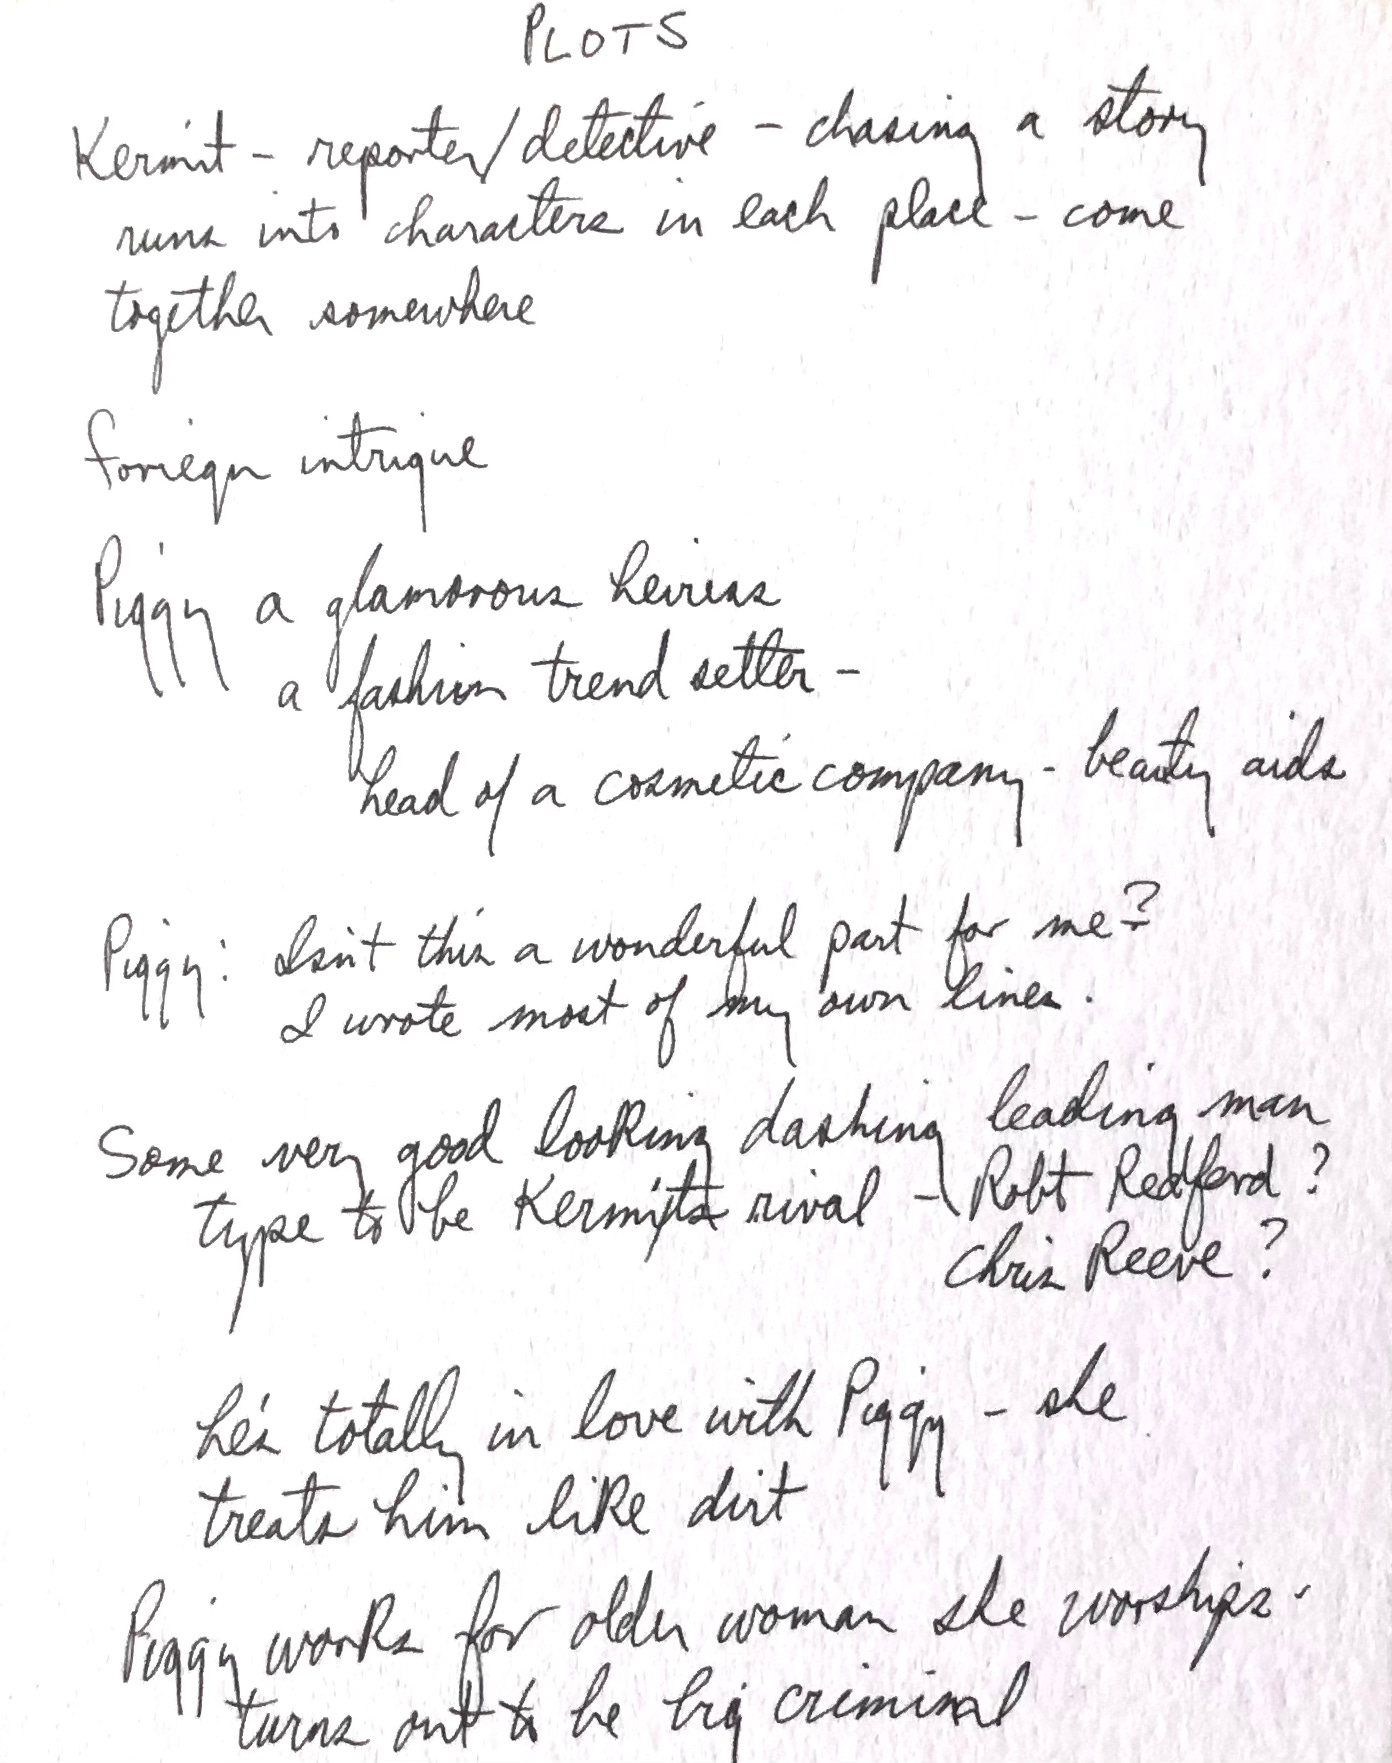 PLOTS
Kermit - reporter/detective - chasing a story
runs into characters in each place - come
together somewhere
foriegn intrigue
Piggy a glamorous heiress
a fashion trend setter -
head of a cosmetic company - beauty aids
Piggy: Isn't this a wonderful part for me?
I wrote most of my own lines.
Some very good looking dashing leading man
type to be Kermits rival - Robt Redford?
Chris Reeve?
he's totally in love with Piggy - she
treats him like dirt
Piggy works for older woman she worships -
turns out to be big criminal